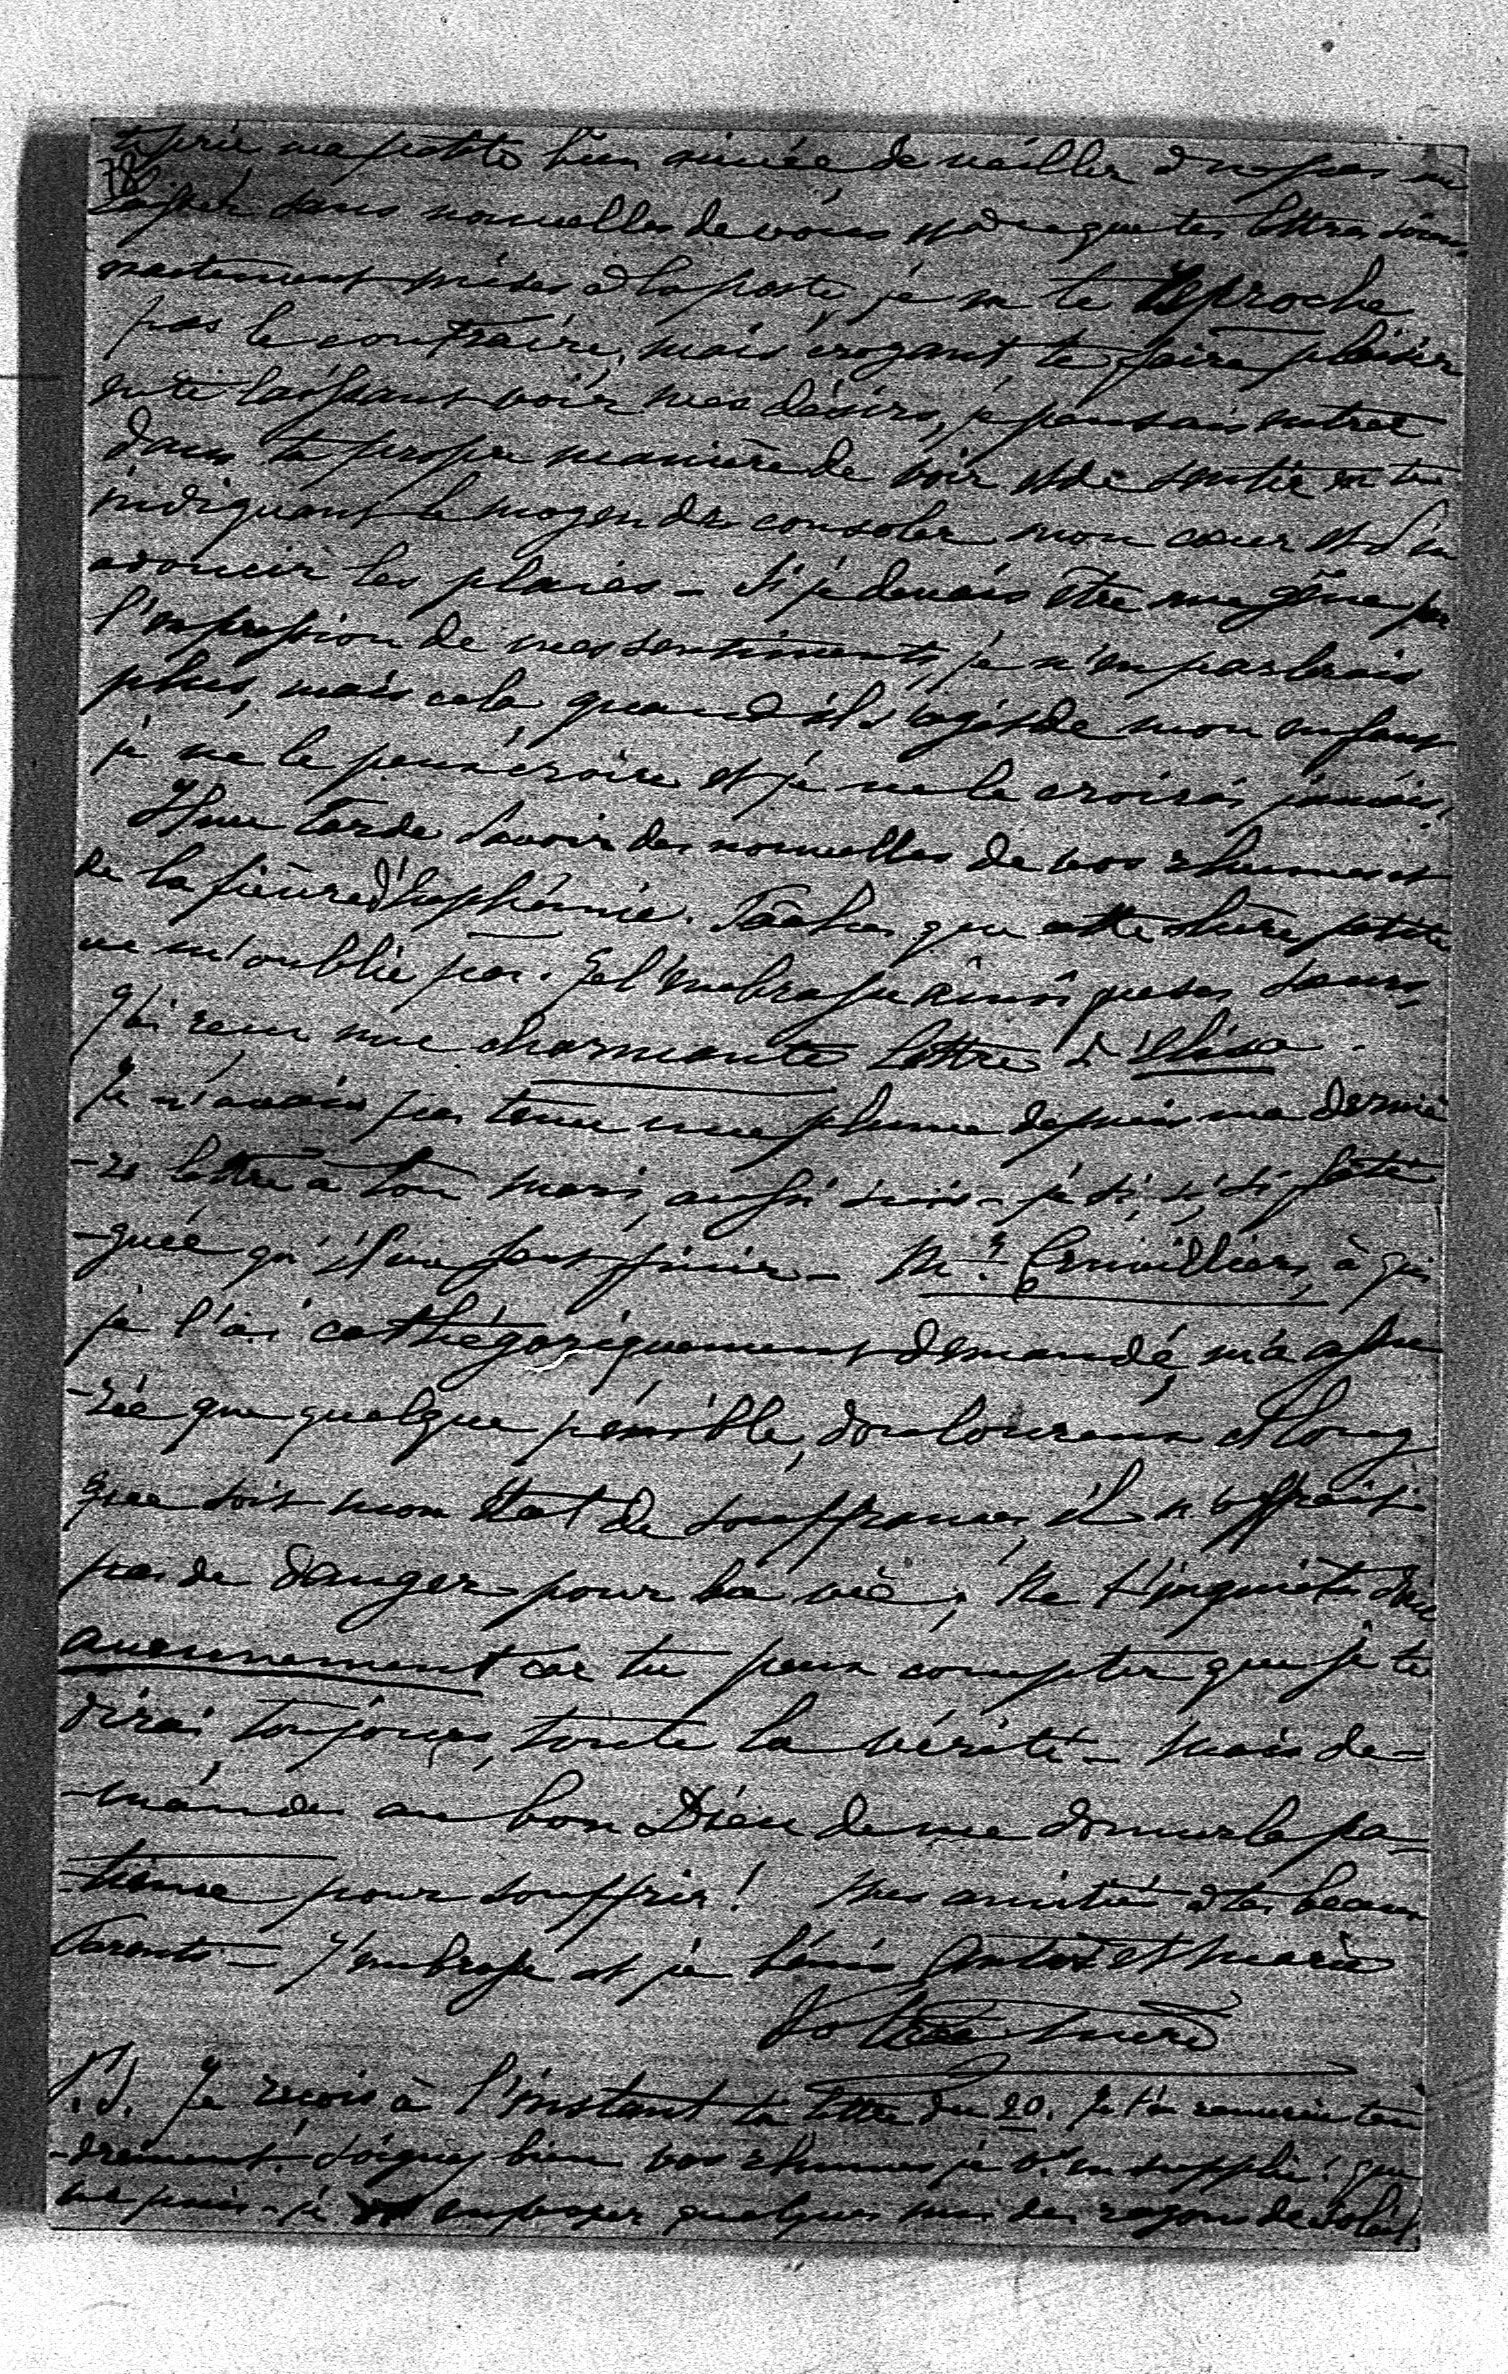 te prie ma petite bien aimée de veiller à ne pas me
laisser sans nouvelles de vous et à ce que tes lettres soient
exactement mises à la poste, je ne te reproche
pas le contraire, mais croyant te faire plaisir
en te laissant voir mes désirs, je pensais entrer
dans ta propre manière de voir et de sentir en te
indiquant le moyen de consoler mon cœur et d'en
adoucir les plaies - Si je devais être une gêne par
l'expression de mes sentiments, je n'en parlerais
plus, mais cela quand il s'agit de mon enfant
je ne le peux croire et je ne le croirai jamais,
Il me tarde d'avoir des nouvelles de vos rhumes et
de la fièvre d'Euphémie. Tâches que cette chère petite
ne m'oublie pas. Je l'embrasse ainsi que ses sœurs,
j'ai reçu une charmante lettre d'Elisa.
Je n'avais pas tenu une plume depuis ma derniè
-re lettre à ton mari, aussi suis-je si, si, si fati
-guée qu'il me faut finir - Mr. Cruvillier, à qui
je l'ai cathégoriquement demandé, m'a assu
-rée que quelque pénible, douloureux et long
que soit mon état de souffrances, il n'offrait
pas de danger pour la vie; Ne t'inquiètes donc
aucunement car tu peux compter que je te
dirai toujours, toute la vérité - Mais de-
-mandes au bon Dieu de me donner la pa-
-tience pour souffrir! Mes amitiés à tes beaux
Parents - J'embrasse et je bénis et Marie
Votre mère
P.S. Je reçois à l'instant ta lettre du 20. Je t'en remercie ten
-drement! Soignez bien vos rhumes je v. en supplie! que
ne puis-je exposer quelques uns des rayons de soleil